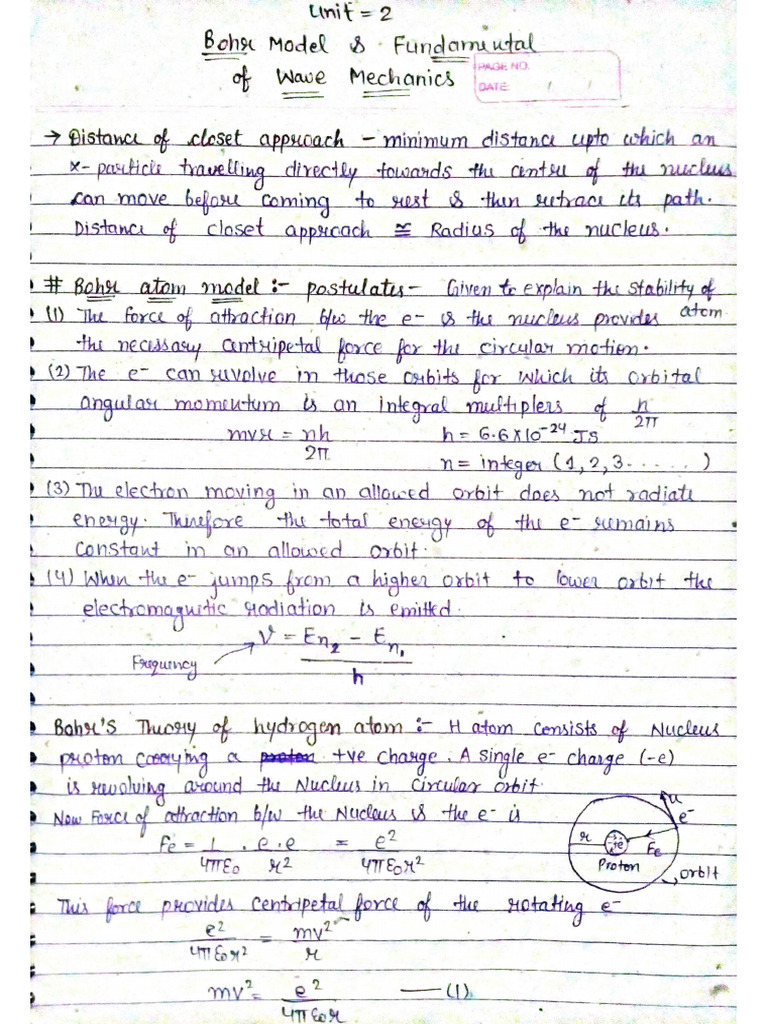 Unit = 2
Bohr Model & Fundamental
of Wave Mechanics
PAGE NO.
DATE: / /
→ Distance of closet approach – minimum distance upto which an
α- particle travelling directly towards the centre of the nucleus
can move before coming to rest & then retrace its path.
Distance of closet approach ≅ Radius of the nucleus.
# Bohr atom model :- postulates- Given to explain the stability of
atom.
(1) The force of attraction b/w the e- & the nucleus provides
the necessary centripetal force for the circular motion.
(2) The e- can revolve in those orbits for which its orbital
angular momentum is an integral multiplers of h/2π
mvr = nh/2π h = 6.6×10⁻²⁴ JS
n = integer (1, 2, 3.......)
(3) The electron moving in an allowed orbit does not radiate
energy. Therefore the total energy of the e- remains
constant in an allowed orbit.
(4) When the e- jumps from a higher orbit to lower orbit the
electromagnetic radiation is emitted.
ν = En₂ – En₁ / h
Frequency
Bohr'S Theory of hydrogen atom :- H atom consists of Nucleus
proton carrying a proton +ve charge. A single e- charge (-e)
is revolving around the Nucleus in circular orbit.
Now Force of attraction b/w the Nucleus & the e- is
Fe = 1/4πε₀ . e.e/r² = e²/4πε₀r²
u
e-
r
+e
Fe
Proton
orbit
This force provides centripetal force of the rotating e-
e²/4πε₀r² = mv²/r
mv² = e²/4πε₀r —(1)